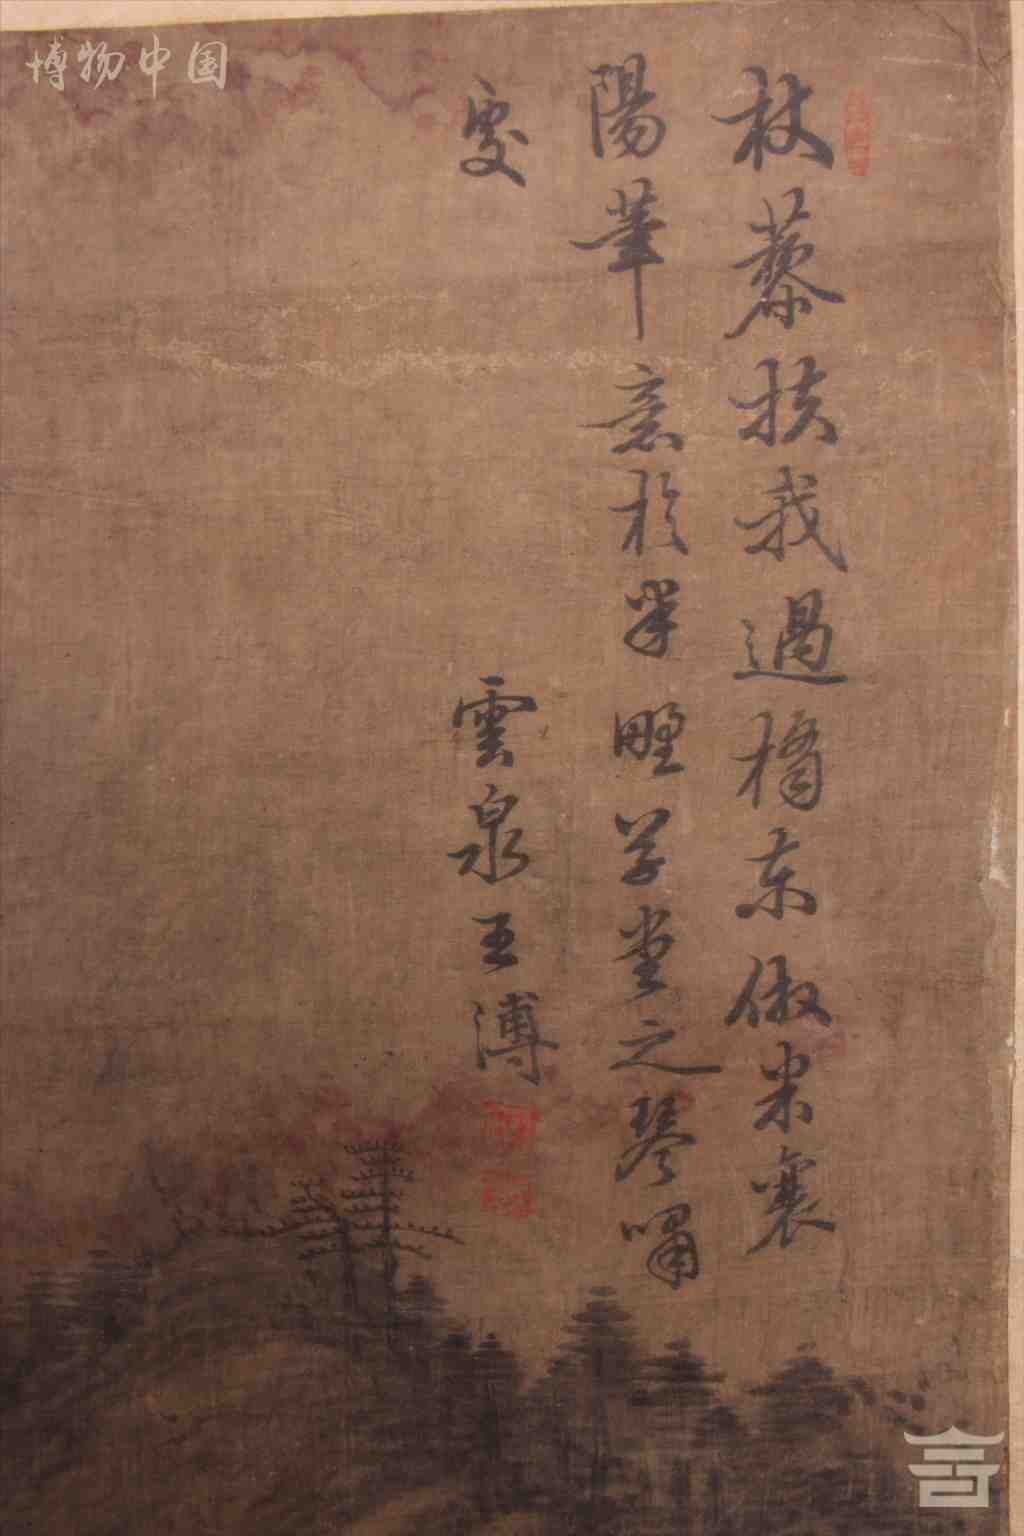 杖藜扶我過橋東倣米襄
陽筆意於半野草堂之琴嘯
處
雲泉王溥
博物中国